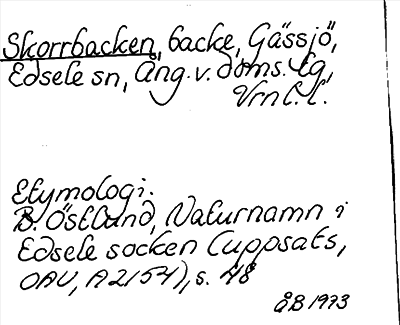 Skorrbacken, backe, Gässjö,
Edsele sn, Ång. v. doms. tg,
Vrnl. l.
Etymologi.
B. Östlund, Naturnamn i
Edsele socken (uppsats,
OAU, A2154), s. 48
ÅB 1973